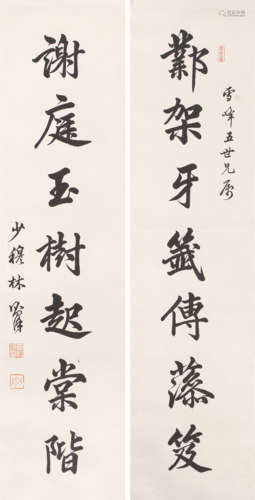 鄴架牙籤傳藻笈
雪峰五世兄屬
謝庭玉樹起棠階
少穆林則徐